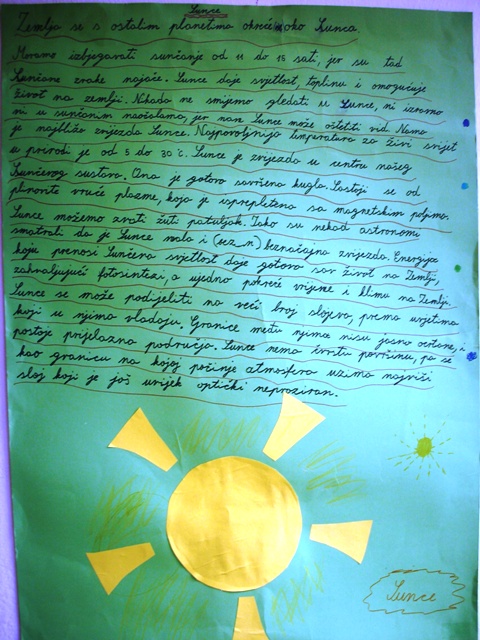 Sunce
Zemlja se s ostalim planetima okreće oko Sunca.
Moramo izbjegavati sunčanje od 11 do 15 sati, jer su tad
Sunčane zrake najače. Sunce daje svjetlost, toplinu i omogućuje
život na zemlji. Nikada ne smijemo gledati u Sunce, ni izravno
ni u sunčanim naočalama, jer nam Sunce može oštetiti vid. Nama
je najbliže zvijezda Sunce. Najpovoljnija temperatura za živi svijet
u prirodi je od 5 do 30°C. Sunce je zvijezda u centru našeg
Sunčevog sustava. Ona je gotovo savršena kugla. Sastoji se od
vruće plazme, koja je isprepletena sa magnetskim poljima.
Sunce možemo zvati žuti patuljak. Iako su nekad astronomi
smatrali da je Sunce mala i beznačajna zvijezda. Energija
koju prenosi Sunčeva svjetlost daje gotovo sav život na Zemlji,
zahvaljujući fotosintezi, a ujedno pokreće vrijeme i klimu na Zemlji.
Sunce se može podijeliti na veći broj slojeva, prema uvjetima
koji u njima vladaju. Granice među njima nisu jasno ocrtane, i
postoje prijelazna područja. Sunce nema čvrstu površinu, pa se
kao granicu na kojoj počinje atmosfera uzima najviši
sloj koji je još uvijek optički neproziran.
Sunce